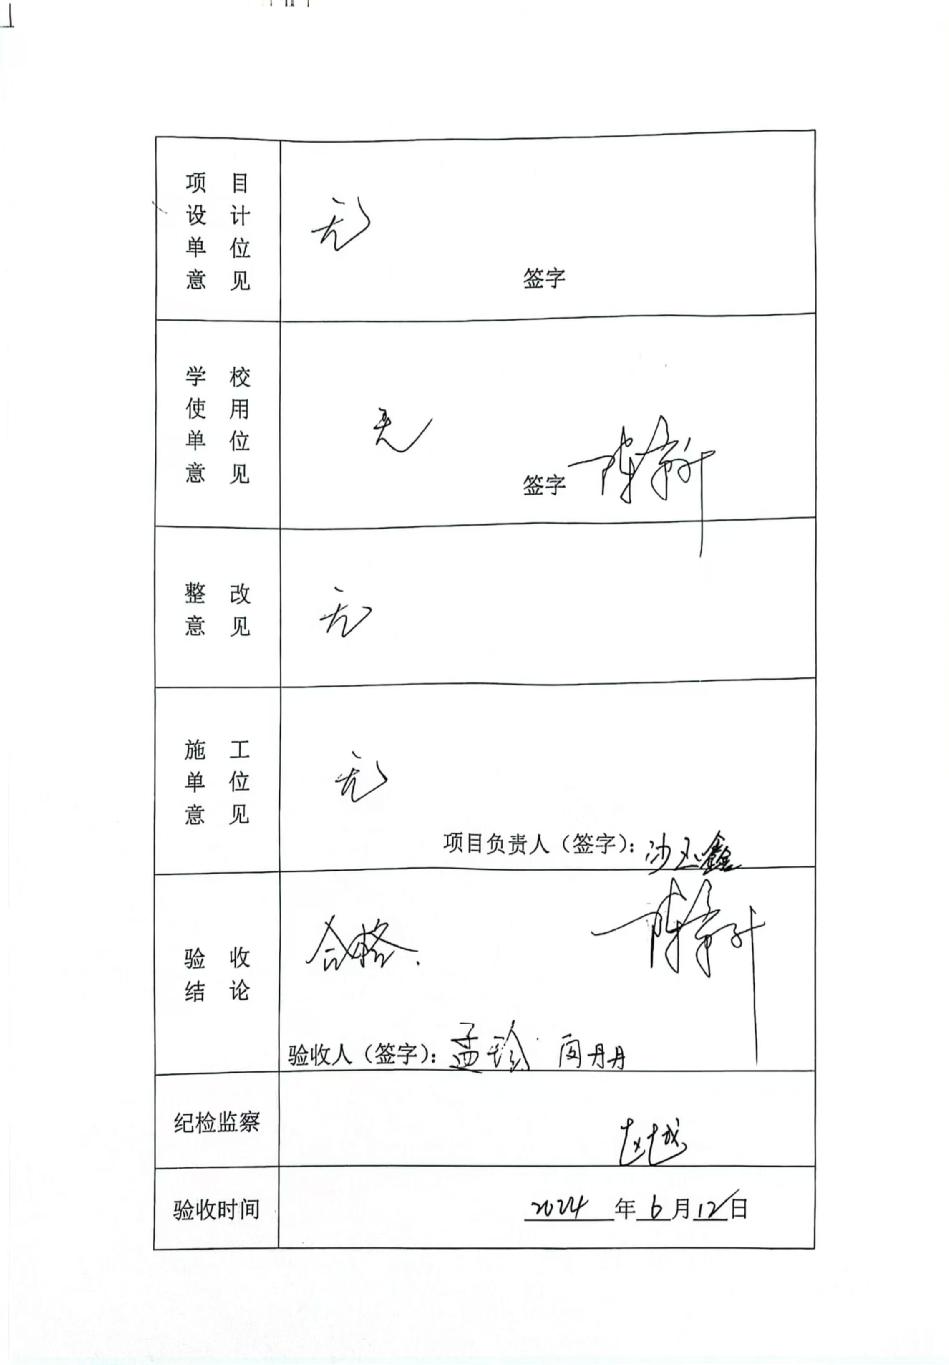 项 目
设 计
单 位
意 见
无
签字
学 校
使 用
单 位
意 见
无
签字
整 改
意 见
无
施 工
单 位
意 见
无
项目负责人（签字）：沙玉鑫
验 收
结 论
合格.
验收人（签字）：孟珍 闵丹丹
纪检监察
赵越
验收时间
2024 年 6 月 12 日